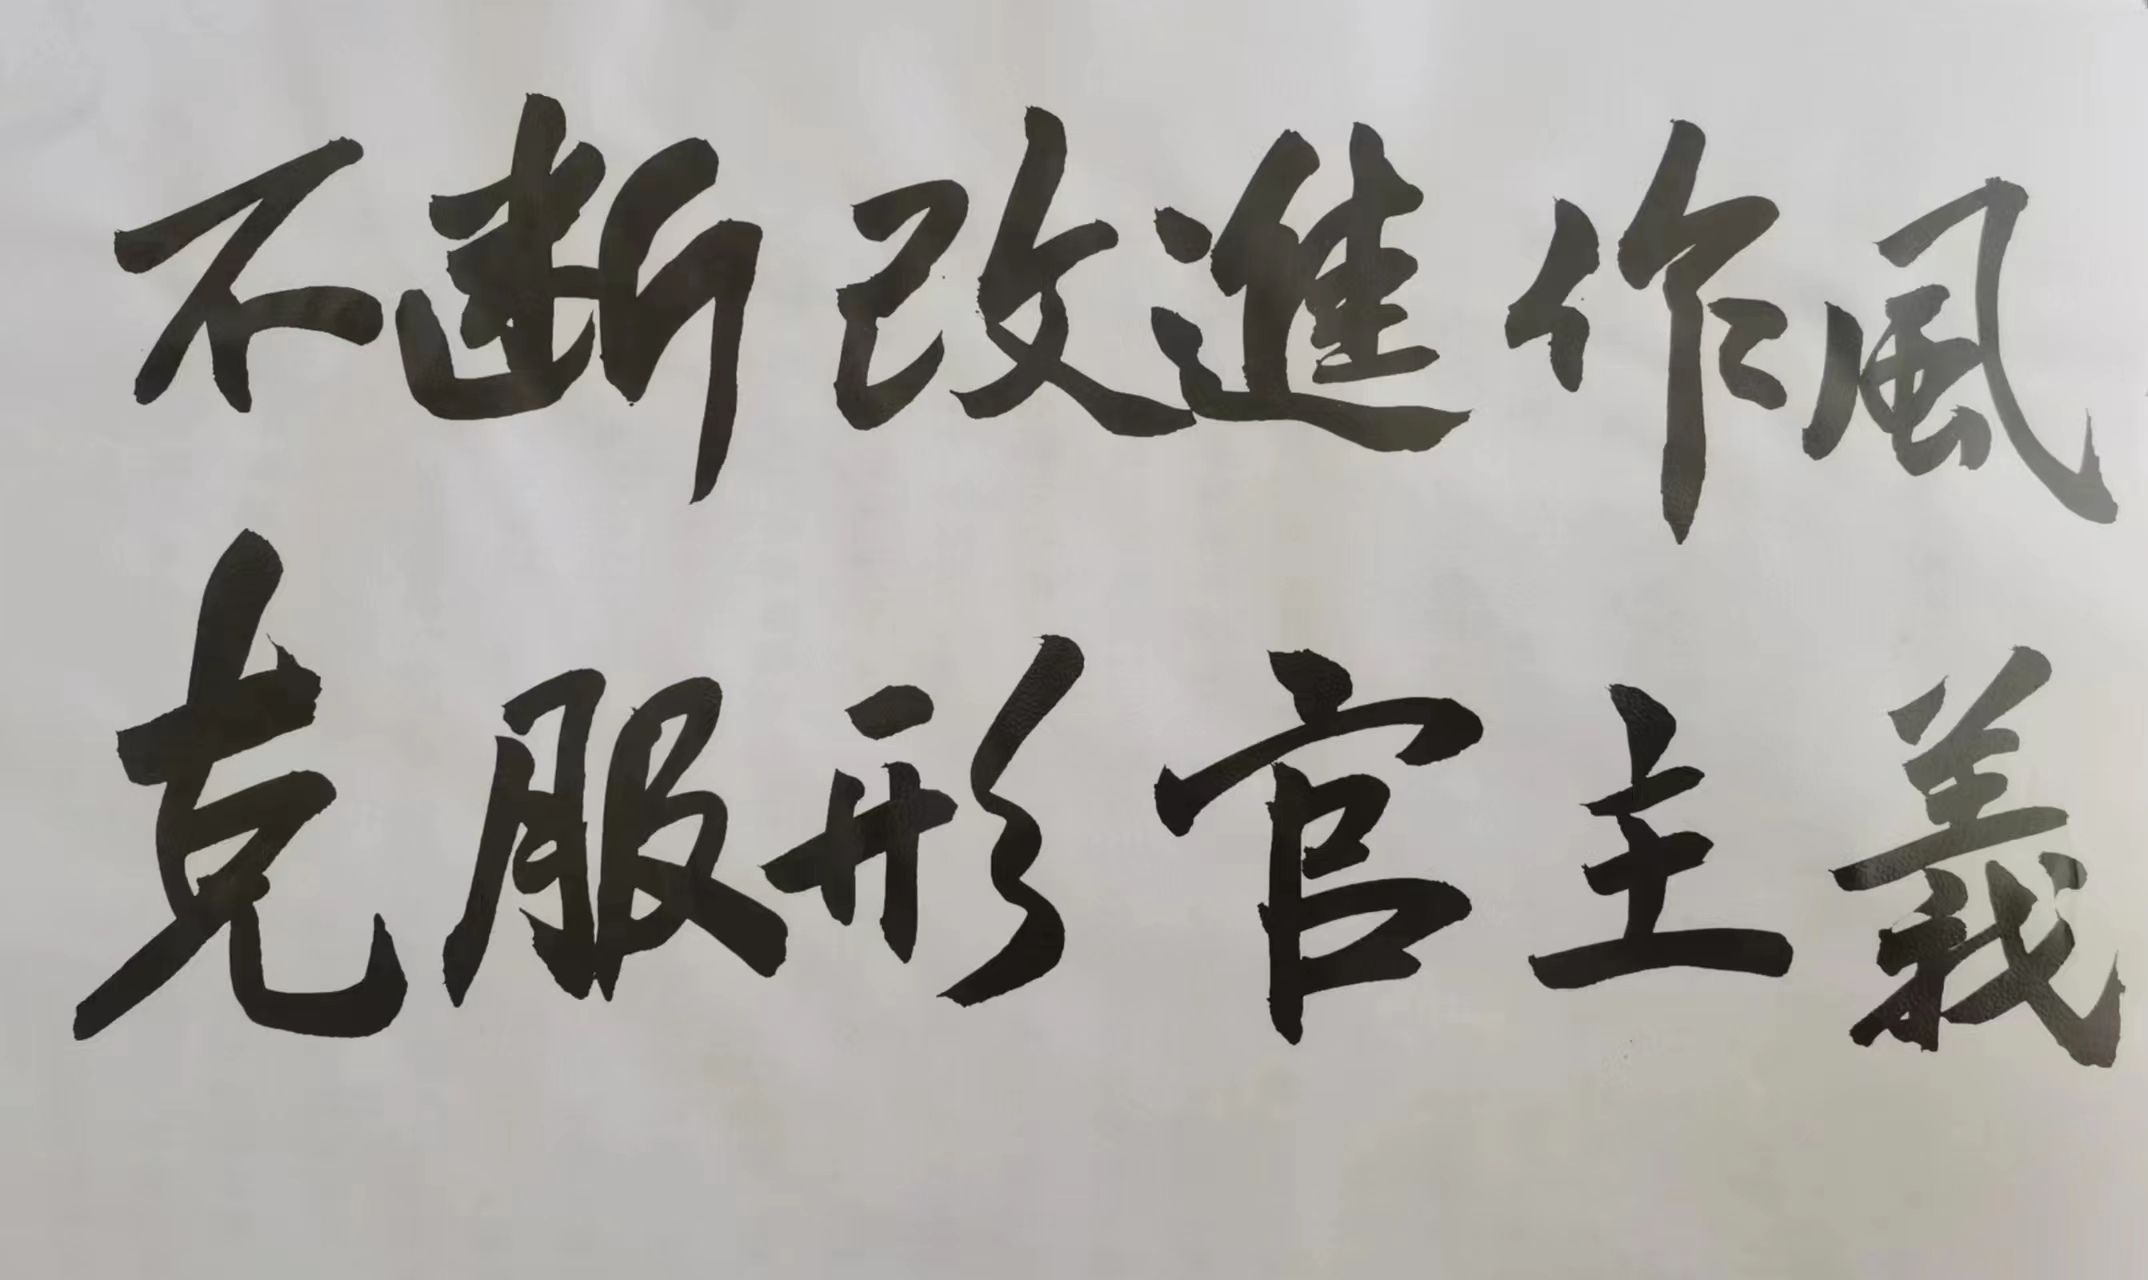 不断改進作風
克服形官主義